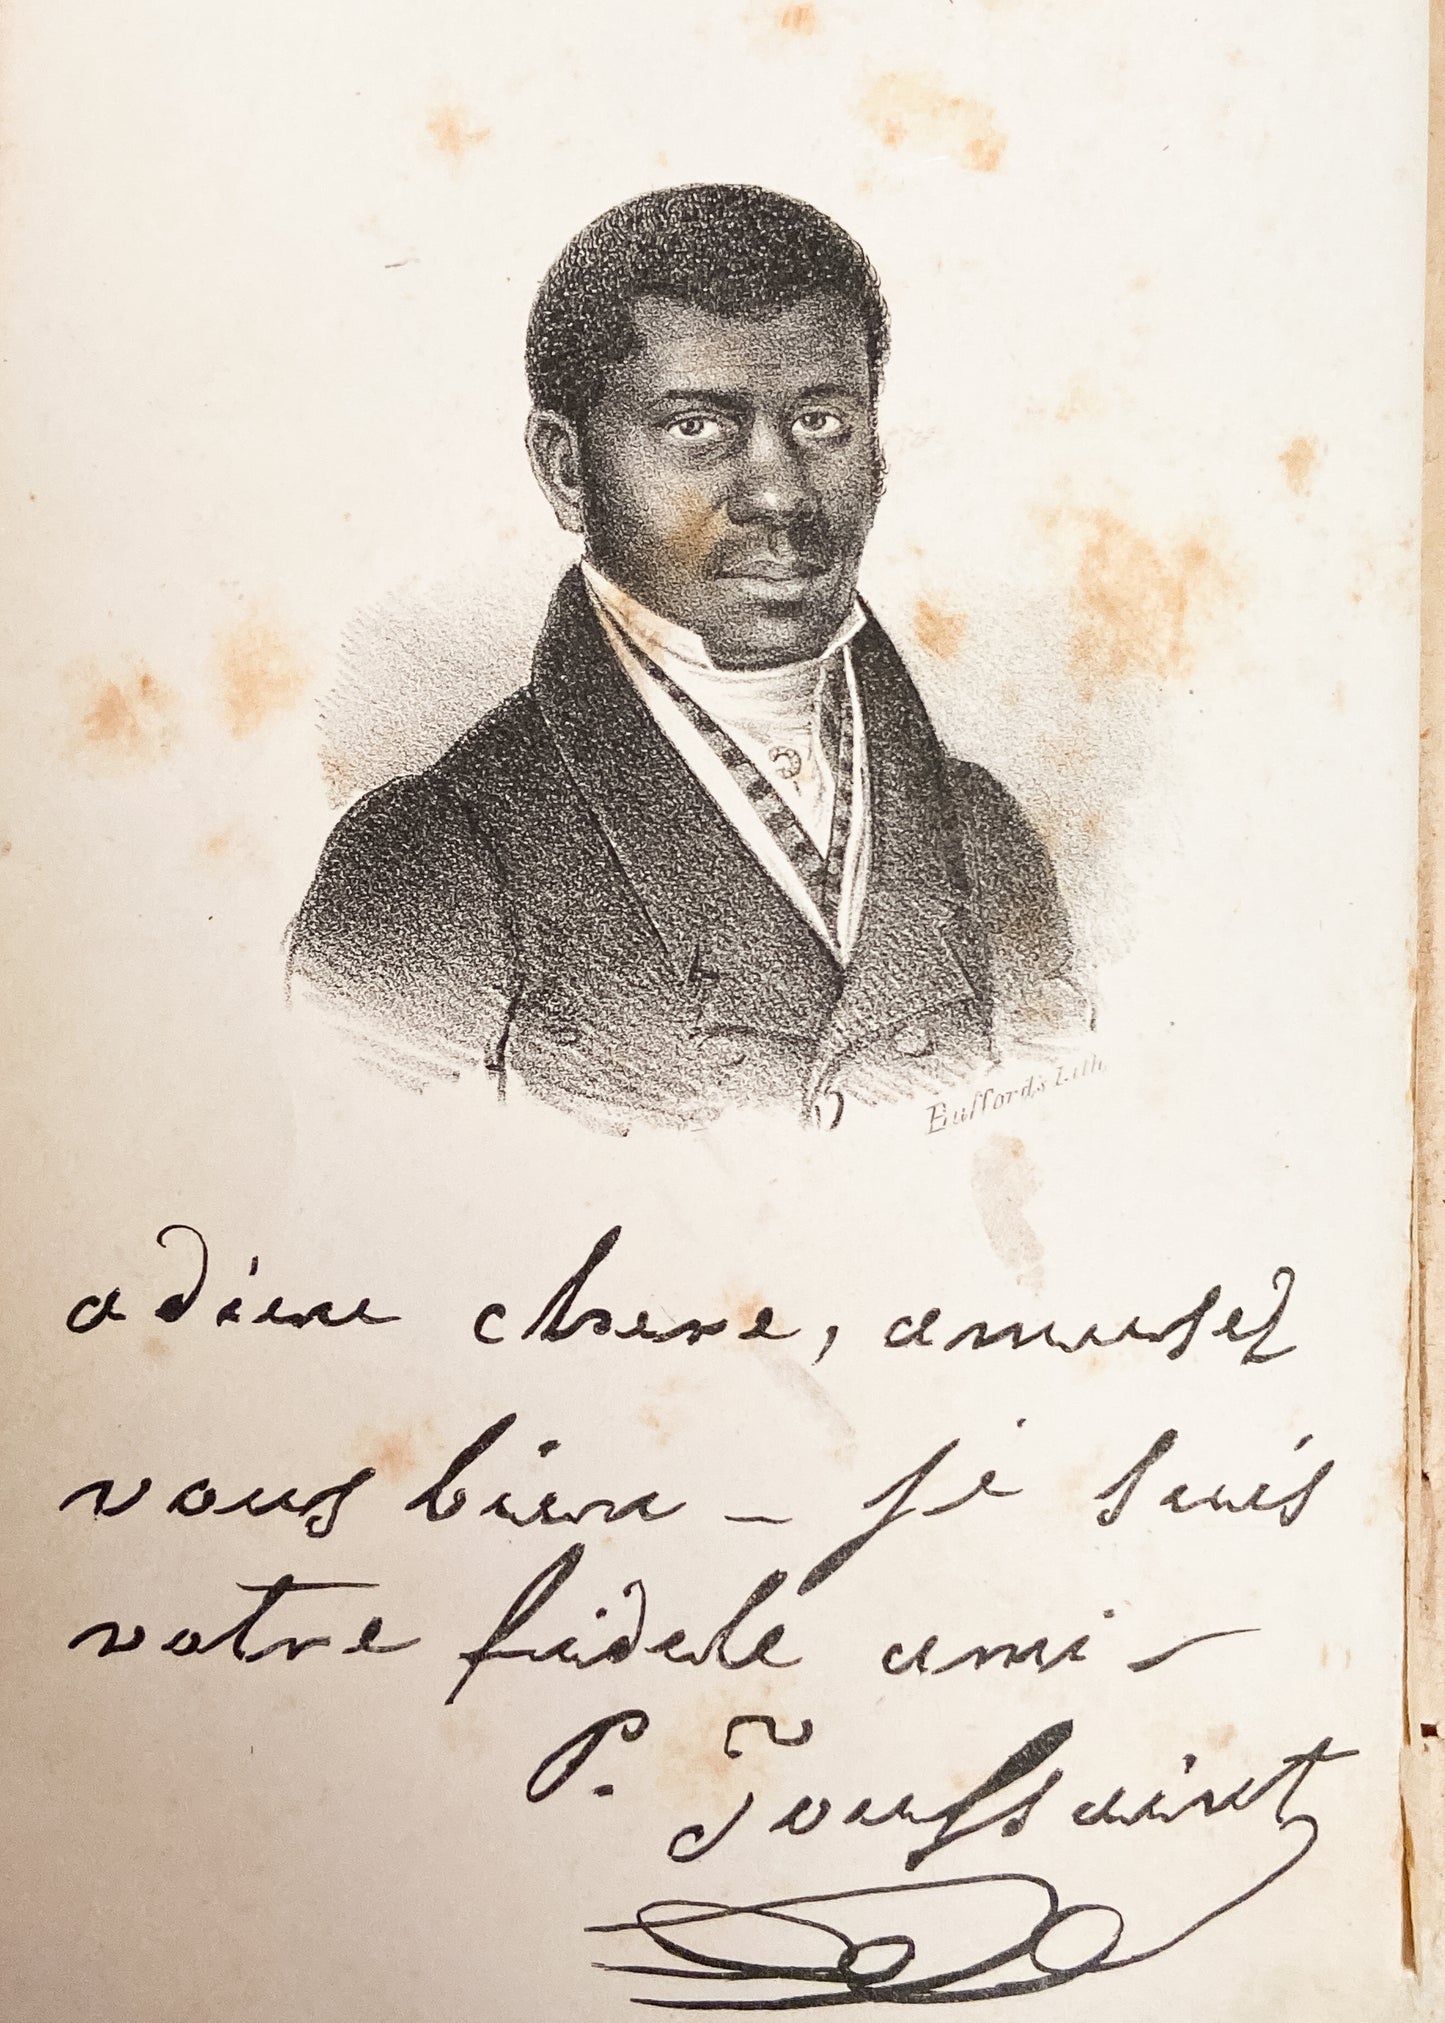 Bufford's Lith.
adieu chere, amusez
vous bien – je suis
votre fidele ami –
P. Toussaint